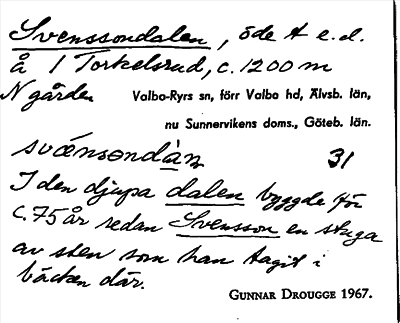 Svenssondalen, öde t e.d.
å 1 Torkelsrud, c. 1200 m
N gården
Valbo-Ryrs sn, förr Valbo hd, Älvsb. län,
nu Sunnervikens doms., Göteb. län.
31
I den djupa dalen byggde för
c. 75 år sedan Svensson en stuga
av sten som han tagit i
bäcken där.
GUNNAR DROUGGE 1967.